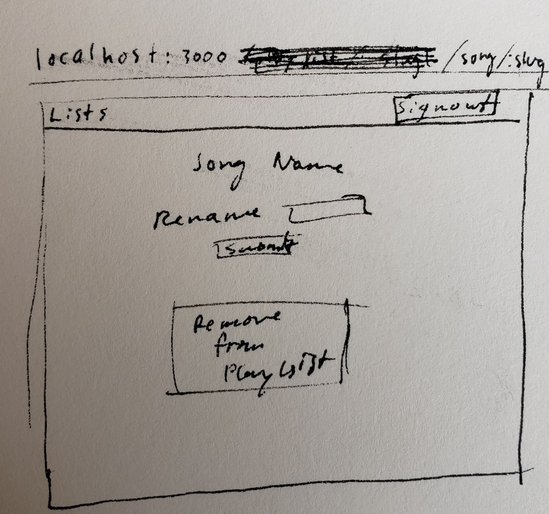 localhost:3000 /song/:slug
Lists Signout
Song Name
Rename
Submit
Remove
from
Playlist